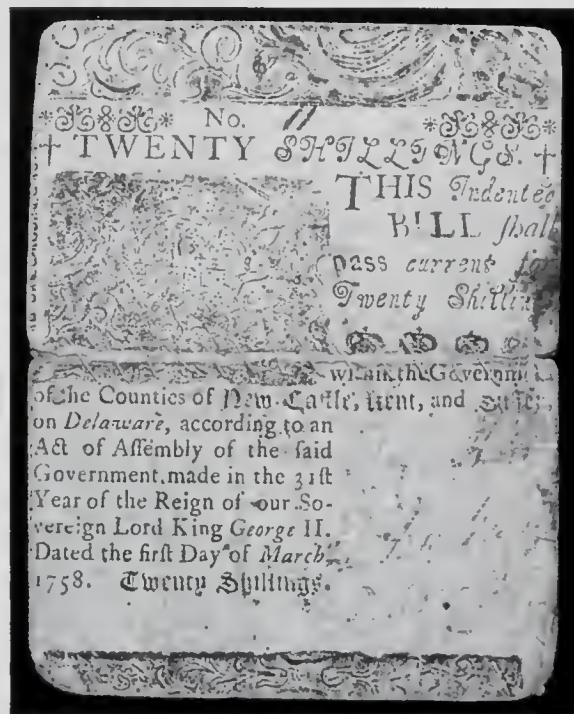 No. 11
† TWENTY SHILLINGS. †
THIS Indented
BILL ſhall
paſs current for
Twenty Shillin
within the Governm
of the Counties of New-Caſtle, Kent, and Suſſex,
on Delaware, according to an
Act of Aſſembly of the ſaid
Government, made in the 31ſt
Year of the Reign of our So-
vereign Lord King George II.
Dated the firſt Day of March,
1758. Twenty Shillings.